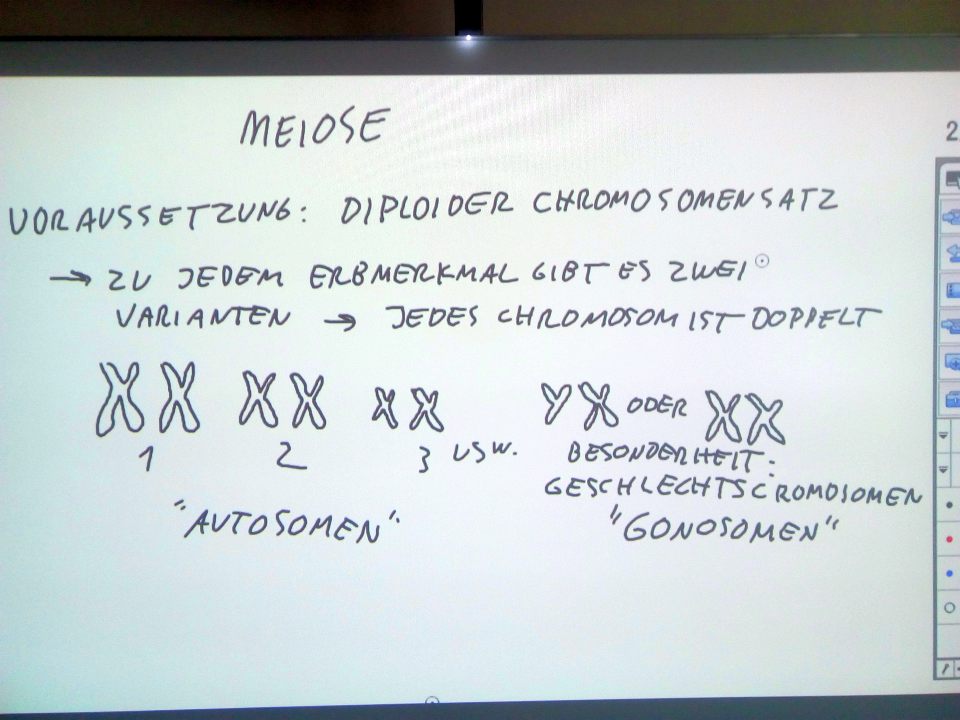 MEIOSE
VORAUSSETZUNG: DIPLOIDER CHROMOSOMENSATZ
→ ZU JEDEM ERBMERKMAL GIBT ES ZWEI
VARIANTEN → JEDES CHROMOSOM IST DOPPELT
YX ODER XX
1 2 3 USW.
BESONDERHEIT:
GESCHLECHTSCROMOSOMEN
"AUTOSOMEN" "GONOSOMEN"
2